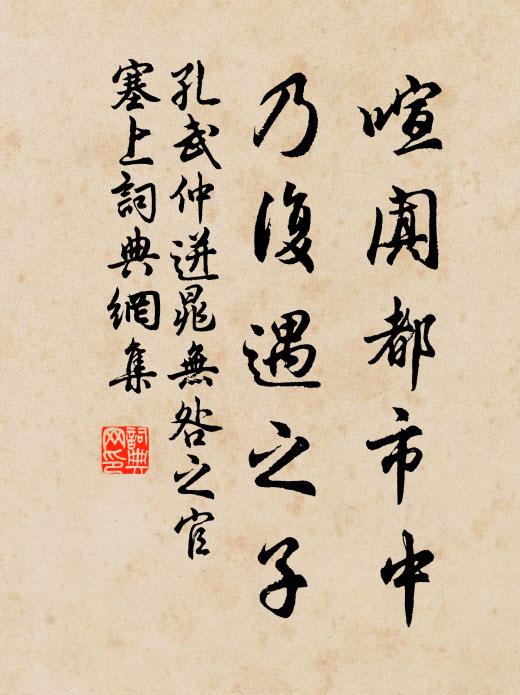 喧闐都市中
乃復遇之子
孔武仲送晁無咎之官
塞上詞典網集
詞典网印